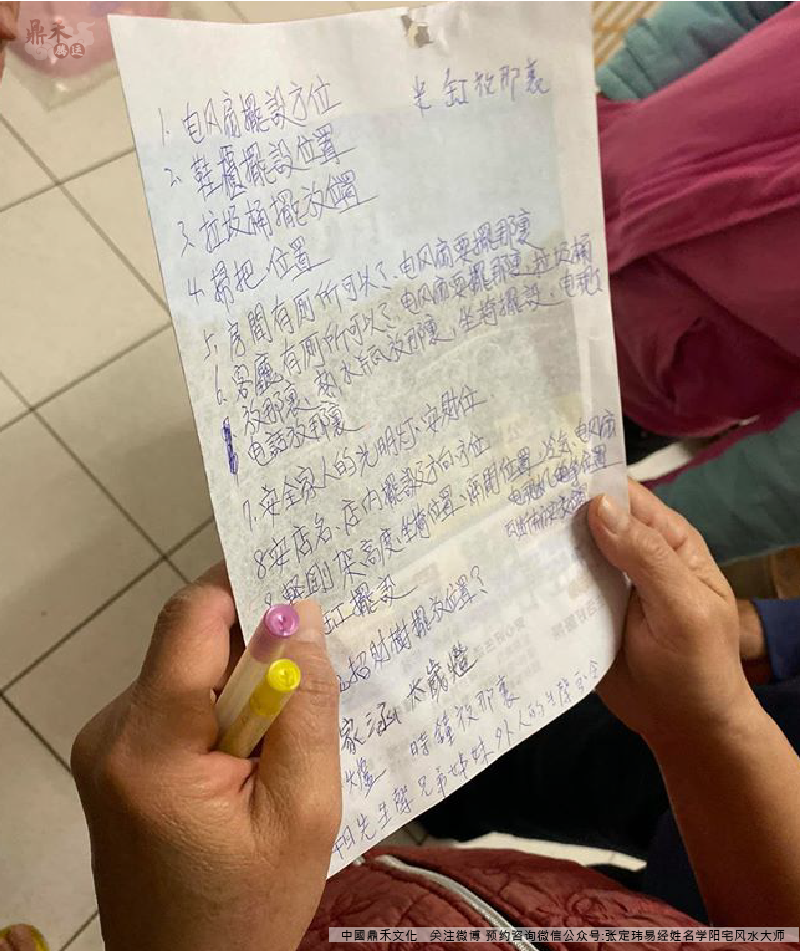 鼎禾
腾运
米缸放那裏
1. 电风扇擺設方位
2. 鞋櫃擺設位置
3. 垃圾桶擺放位置
4. 掃把、位置
5. 房間有厠所可以?、电风扇要擺那裏
6. 客廳有厠所可以?、电风扇要擺那裏、垃圾桶
放那裏、熱水瓶放那裏、坐椅擺設、电視
電話放那裏
7. 安全家人的光明灯、安財位
8. 安店名、店内擺設方向方位
高度、坐椅位置、位置、冷气、电风扇
位置
缸擺設
招財樹擺放位置?
家 太歲燈
時鐘放那裏
先生 兄弟姊妹 外人的
中國鼎禾文化 关注微博 预约咨询微信公众号:张定玮易经姓名学阳宅风水大师